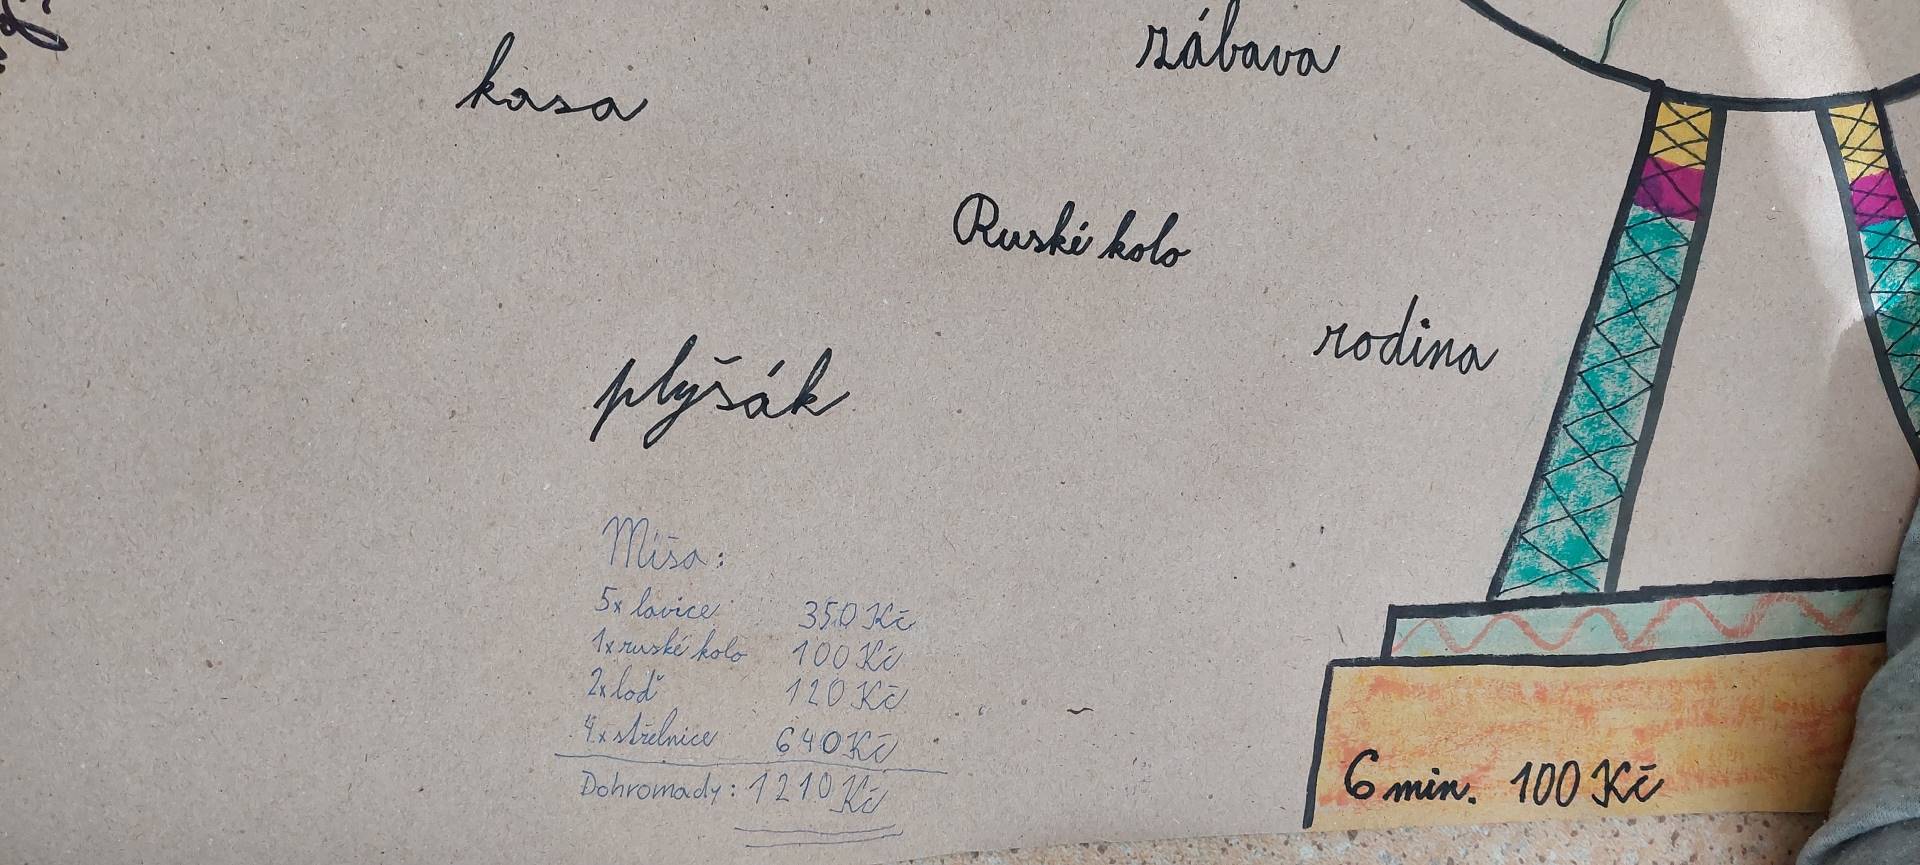 zábava
kasa
Ruské kolo
rodina
plyšák
Míša:
5x lavice 350 Kč
1x ruské kolo 100 Kč
2x loď 120 Kč
4x střelnice 640 Kč
Dohromady: 1210 Kč
6 min. 100 Kč